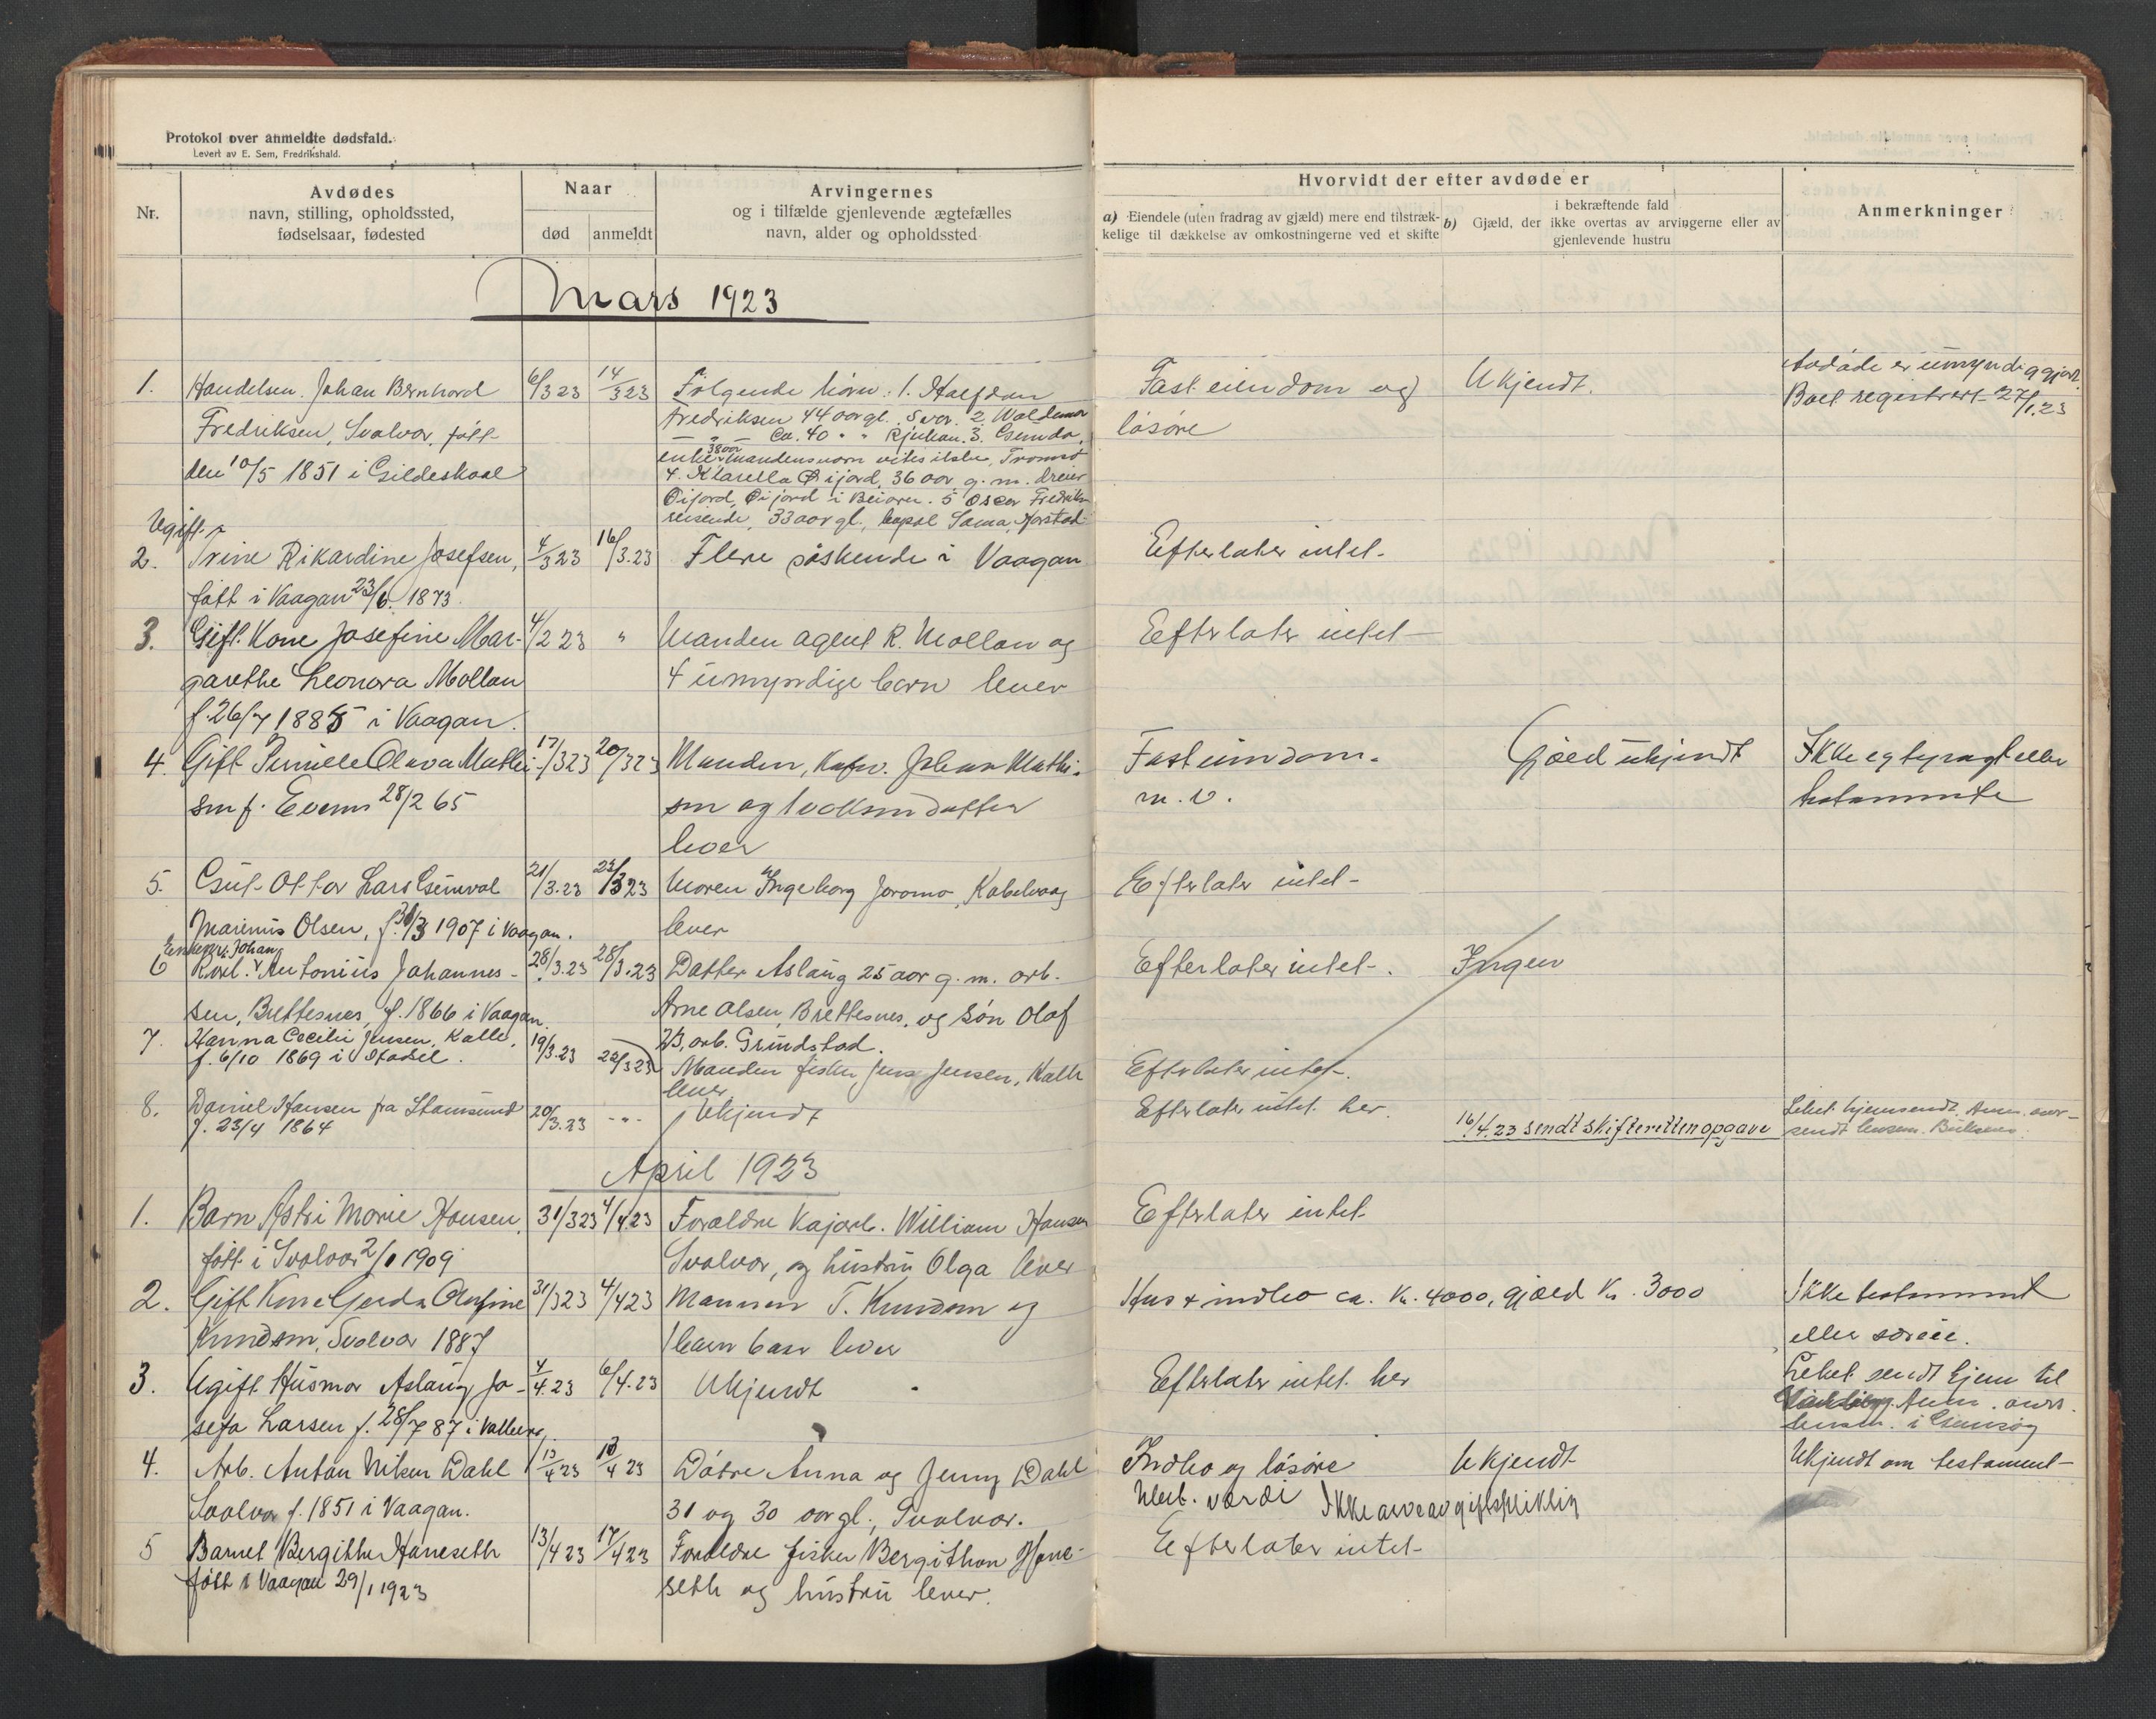 Protokol over anmeldte dødsfald.
Levert av E. Sem, Fredrikshald.
Nr.
Avdødes
navn, stilling, opholdssted,
fødselsaar, fødested
Naar
død
anmeldt
Arvingernes
og i tilfælde gjenlevende ægtefælles
navn, alder og opholdssted
Hvorvidt der efter avdøde er
a) Eiendele (uten fradrag av gjæld) mere end tilstræk-
kelige til dækkelse av omkostningerne ved et skifte
i bekræftende fald
b) Gjæld, der ikke overtas av arvingerne eller av
gjenlevende hustru
Anmerkninger
Mars 1923
1. Handelsm. Johan Bernhard
Fredriksen, Svolvær, født
den 10/5 1851 i Gildeskaal
6/3 23
14/3 23
Følgende børn: 1. Halfdan
Fredriksen 44 aar gl. Svær. 2. Waldemar
— " — Ca. 40 " " Rjukan. 3.
enke 38 aar mandens navn vites ikke, Tromsø
4. Klarella Øijord, 36 aar g. m. Dreier
Øijord, Øijord i Beiaren. 5 Oscar Fredriks
reisende, 33 aar gl., Harstad
Fast eiendom og
løsøre
Ukjendt.
Avdøde er umyndiggjort.
Boet registrert 27/1.23
Ugift
2. Trine Rikardine Josefsen,
født i Vaagan 23/6 1873.
4/3 23
16/3.23
Flere søskende i Vaagan
Efterlater intet
3. Gift Kone Josefine Mar-
garethe Leonora Mollan
f. 26/7 1885 i Vaagan.
4/2 23
"
Manden agent R. Mollan og
4 umyndige barn lever
Efterlater intet
4. Gift Pernille Olava Mathi-
sen f. Evenes 28/2 65
17/3 23
20/3 23
Manden, Johan Mathi-
sen og voksen datter
lever
Fast eiendom.
m. v.
Gjæld ukjendt
Ikke egtepagt eller
testamente
5. Gut Ottar Lars
Marinius Olsen, f. 30/3 1907 i Vaagan.
21/3.23
23/3 23
Moren Ingeborg Joramo, Kabelvaag
lever
Efterlater intet
6 Enkem. Johan
Antonius Johannes-
sen, Brettesnes, f. 1866 i Vaagan.
28/3.23
28/3.23
Datter Aslaug 25 aar g. m. arb.
Arne Olsen, Brettesnes, og søn Olaf
23, arb. Grimstad.
Efterlater intet.
Ingen
7. Hanna Cecilie Jensen, Kalle,
f. 6/10 1869 i Stadsel.
19/3.23
22/3 23
Manden fisker Jens Jensen, Kalle
lever
Efterlater intet.
8. Daniel Hansen fra Stamsund
f. 23/4 1864
20/3.23
- " -
Ukjendt
Efterlater intet her.
16/4.23 sendt skifteretten opgave
Liket hjemsendt. Anm. over-
sendt lensm. Buksnes.
April 1923
1. Barn Astri Marie Hansen,
født i Svolvær 2/1 1909
31/3 23
4/4.23
Forældre Kajarb. William Hansen
Svolvær, og hustru Olga lever
Efterlater intet
2. Gift Kone Gerda Olufine
Knudsen, Svolvær 1887
31/3 23
4/4 23
Mannen T. Knudsen og
1 barn 6 aar lever
Hus & indbo ca. Kr. 4000, gjæld Kr. 3000
Ikke testament
eller særeie.
3. Ugift Husmor Aslaug Jo-
sefa Larsen f. 28/7 87 i Valberg.
4/4.23
6/4.23
Ukjendt
Efterlater intet her
Liket sendt hjem til
Anm. overs.
lensm. i Gimsøy
4. Arb. Antan Nilsen Dahl
Svolvær f. 1851 i Vaagan.
12/4 23
13/4 23
Døtre Anna og Jenny Dahl
31 og 30 aar gl., Svolvær.
Indbo og løsøre
Ubet. værdi
Ikke arveavgiftspliktig
Ukjendt
Ukjendt om testament
5 Barnet Bergithe Haneseth
født i Vaagan 29/1 1923
13/4 23
17/4 23
Forældre fisker Bergithon Hane-
seth og hustru lever.
Efterlater intet